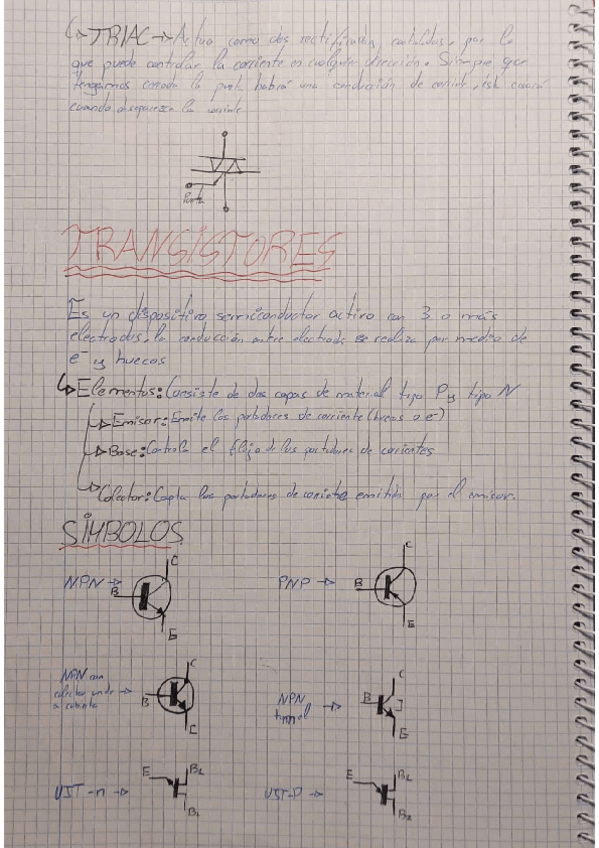 ↳ TRIAC → Actua como dos rectificados controlados, por lo
que puede controlar la corriente en cualquier dirección. Siempre que
tengamos cerrada la puerta habrá una conducción de corriente, ésta cesará
cuando desaparezca la corriente
Puerta
TRANSISTORES
Es un dispositivo semiconductor activo con 3 o más
electrodos, la conducción entre electrodos se realiza por medio de
e⁻ y huecos
↳ Elementos: Consiste de dos capas de material tipo P y tipo N
↳ Emisor: Emite los portadores de corriente (huecos o e⁻)
↳ Base: Controla el flujo de los portadores de corrientes
↳ Colector: Capta los portadores de corriente emitidos por el emisor.
SÍMBOLOS
NPN → B C E
PNP → B C E
NPN con
colector unido →
a cubierta
B C E
NPN
tunnel →
B C E
UST-n → E B2 B1
UST-P → E B2